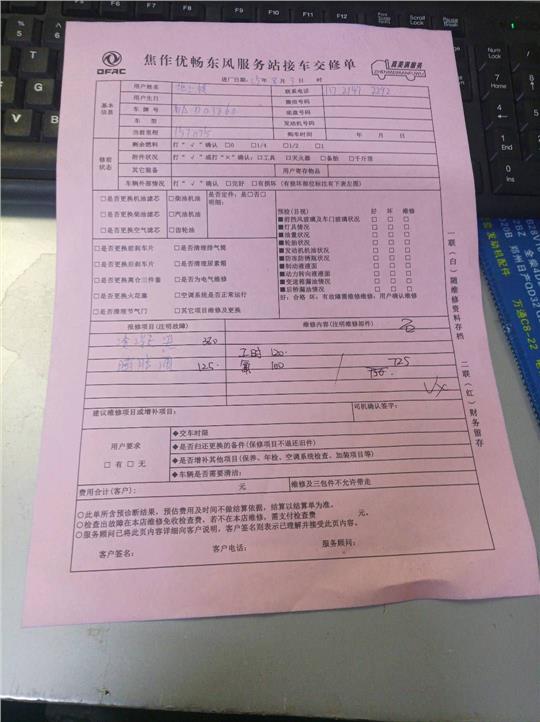 DFAC
焦作优畅东风服务站接车交修单
真美满服务
ZHENMEIMANFUWU
进厂日期: 15年 8月 3日 时
基本信息
用户姓名 联系电话
用户生日 微信号码
车牌号 底盘号码
车型 发动机号码
当前里程 购车时间 年 月 日
修前状态
剩余燃料 打“√”确认 □0 □1/4 □1/2 □1
附件状况 打“√”或打“×”确认:□工具 □灭火器 □备胎 □千斤顶
其它装备 用户寄存物品
车辆外部情况 打“√”确认 □完好 □有损坏(有损部位标注有下表左图)
□是否更换机油滤芯 □柴油机油
□是否更换柴油滤芯 □汽油机油
□是否更换空气滤芯 □齿轮油
是否定件:是□否□
明细:
□是否更换前刹车片 □是否清理排气筒
□是否更换后刹车片 □是否清理尿素箱
□是否更换离合三件套 □是否为电气维修
□是否更换火花塞 □空调系统是否正常运行
□是否清理节气门 □其它项目维修及更换
预检(目视) 好 坏 维修
■前挡风玻璃及车门玻璃状况 □ □ □
■灯具情况 □ □ □
■油量状况 □ □ □
■轮胎状况 □ □ □
■发动机机油状况 □ □ □
■防冻防锈瓶状况 □ □ □
■制动液液面 □ □ □
■动力转向液液面 □ □ □
■变速箱漏油情况 □ □ □
■后桥漏油情况 □ □ □
好:合格 坏:有故障需维修维修:用户确认维修
报修项目(注明故障) 维修内容(注明维修部件)
360
工时 120.
125. 100 725
建议维修项目或增补项目: 司机确认签字:
用户要求
□有 □无
◆交车时限
◆是否归还更换的备件(保修项目不退还旧件)
◆是否增补其他项目(保养、年检、空调系统检查、加装项目等)
◆车辆是否需要清洁:
费用合计(客户): 元 维修及三包件不允许带走
○此单所含预诊断结果,预估费用及时间不做结算依据,结算以结算单为准。
○检查出故障在本店维修免收检查费,若不在本店维修,需支付检查费 元。
○服务顾问已将此页内容详细向客户说明,客户签名则表示已理解并接受此页内容。
客户签名: 客户电话: 服务顾问:
一联(白)随维修资料存档
二联(红)财务留存
万通C8-22